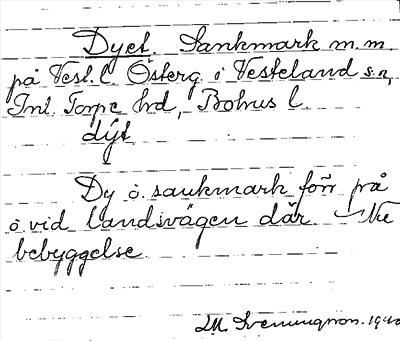 Dyet. Sankmark m.m.
på Vest. l. Österg. i Vesteland s.n,
Inl. Torpe hd, Bohus l.
dýt
Dy o. sankmark förr på
o. vid landsvägen där
bebyggelse